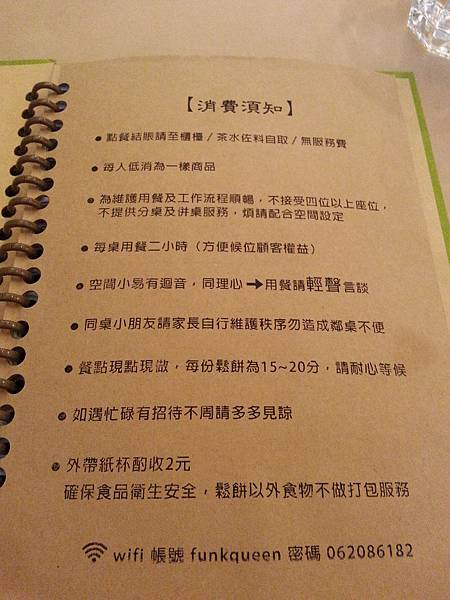 【消費須知】
●點餐結賬請至櫃檯/茶水佐料自取/無服務費
●每人低消為一樣商品
●為維護用餐及工作流程順暢，不接受四位以上座位，
不提供分桌及併桌服務，煩請配合空間設定
●每桌用餐二小時（方便候位顧客權益）
●空間小易有迴音，同理心➞用餐請輕聲言談
●同桌小朋友請家長自行維護秩序勿造成鄰桌不便
●餐點現點現做，每份鬆餅為15~20分，請耐心等候
●如遇忙碌有招待不周請多多見諒
●外帶紙杯酌收2元
確保食品衛生安全，鬆餅以外食物不做打包服務
wifi 帳號 funkqueen 密碼 062086182